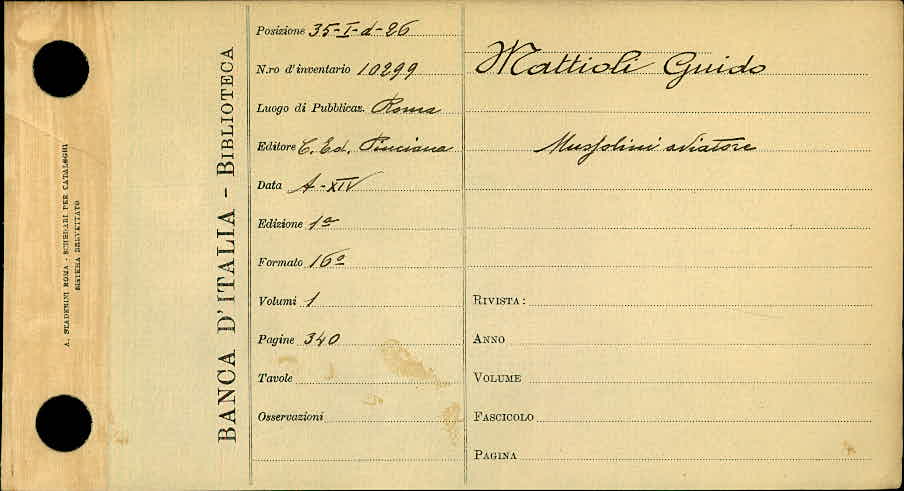 A. STADERINI ROMA - SCHEDARI PER CATALOGHI
SISTEMA BREVETTATO
BANCA D'ITALIA - BIBLIOTECA
Posizione 35-I-d-26
N.ro d'inventario 10299
Luogo di Pubblicaz. Roma
Editore C. Ed. Pinciana
Data A-XIV
Edizione 1ª
Formato 16º
Volumi 1
Pagine 340
Tavole
Osservazioni
Mattioli Guido
Mussolini aviatore
RIVISTA:
ANNO
VOLUME
FASCICOLO
PAGINA